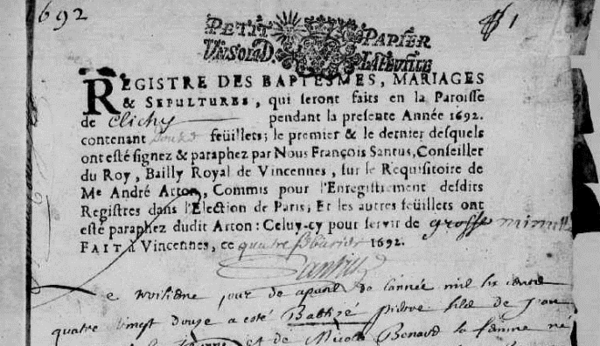 1692
PETIT PAPIER
LA FEUILLE
REGISTRE DES BAPTESMES, MARIAGES
& SEPULTURES, qui seront faits en la Paroisse
de Clichy pendant la presente Année 1692.
contenant feüillets; le premier & le dernier desquels
ont esté signez & paraphez par Nous François Santus, Conseiller
du Roy, Bailly Royal de Vincennes, sur le Requisitoire de
Me André Arton, Commis pour l'Enregistrement desdits
Registres dans l'Election de Paris; Et les autres feüillets ont
esté paraphez dudit Arton: Celuy-cy pour servir de grosse
FAIT à Vincennes, ce quatre 1692.
jour de de l'année mil six cents
quatre vingt douze a esté Baptisé de
et de Nicole Benard